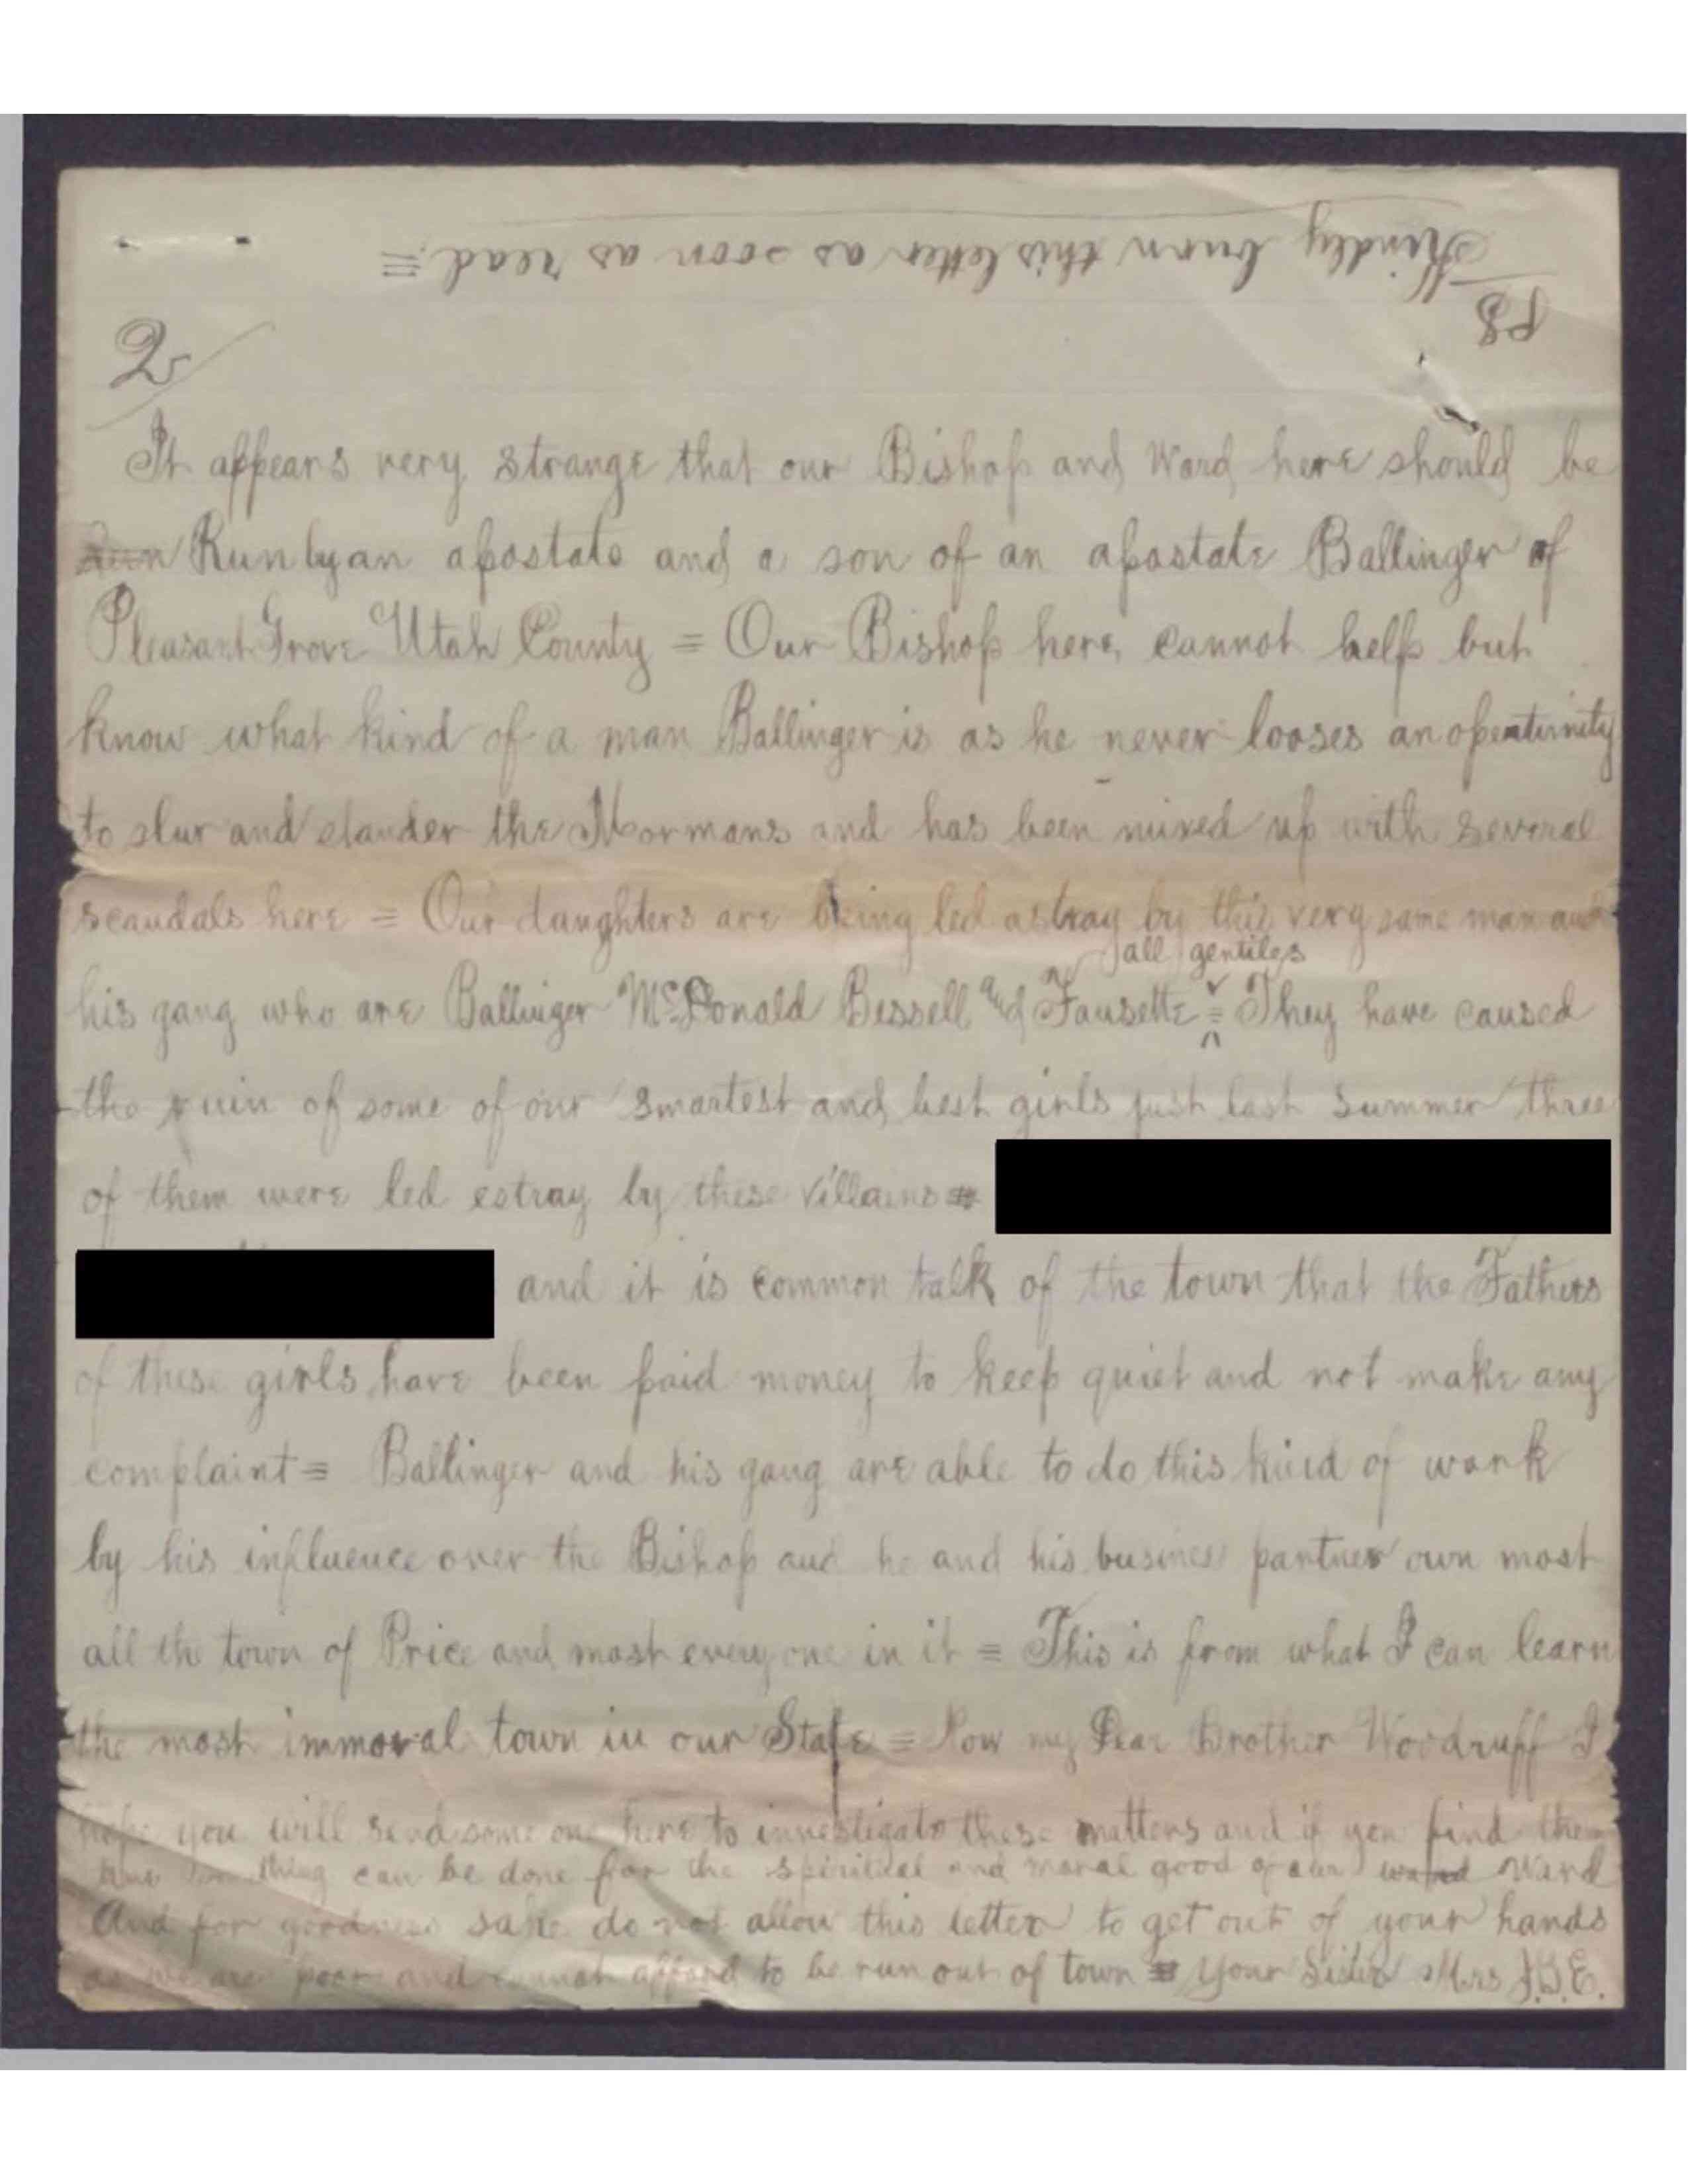 PS
Kindly burn this letter as soon as read =
2
It appears very strange that our Bishop and Ward here should be
Run by an apostate and a son of an apostate Ballinger of
Pleasant Grove Utah County = Our Bishop here cannot help but
know what kind of a man Ballinger is as he never looses an
to slur and slander the Mormons and has been mixed up with several
scandals here = Our daughters are being led astray by this very same man and
all gentiles
his gang who are Ballinger McDonald Bessell and Fausette = They have caused
the ruin of some of our smartest and best girls just last Summer three
of them were led estray by these villains =
and it is common talk of the town that the Fathers
of these girls have been paid money to keep quiet and not make any
complaint = Ballinger and his gang are able to do this kind of work
by his influence over the Bishop and he and his business partner own most
all the town of Price and most every one in it = This is from what I can learn
the most immoral town in our State = Now my Dear Brother Woodruff I
hope you will send some one here to investigate these matters and if you find them
thing can be done for the spiritual and moral good of our Ward
And for goodness sake do not allow this letter to get out of your hands
as we are poor and cannot afford to be run out of town = Your Sister Mrs J.B.E.